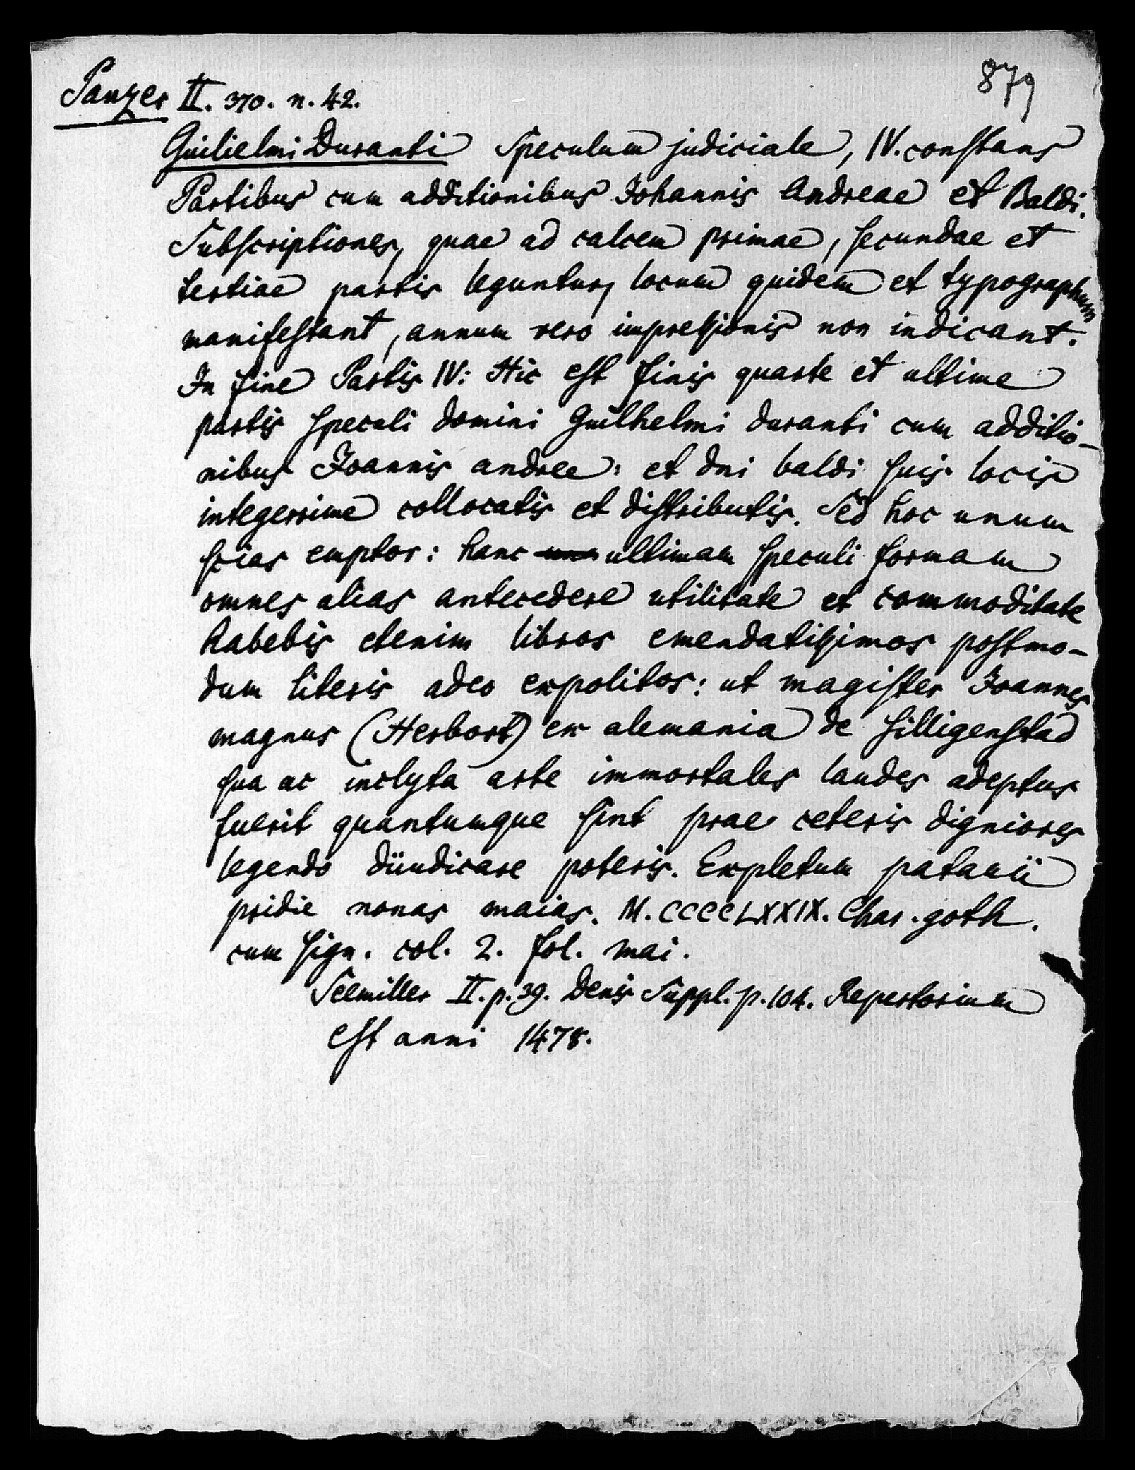 879
Panzer II. 370. n. 42.
Guilielmi Duranti Speculum judiciale, IV. constans
Partibus cum additionibus Johannis Andreae et Baldi.
Subscriptiones, quae ad calcem primae, secundae et
tertiae partis leguntur, locum quidem et typographum
manifestant, annum vero impressionis non indicant.
In fine Partis IV: Hic est finis quarte et ultime
partis speculi domini Guilhelmi duranti cum additio-
nibus Joannis andree: et dni baldi suis locis
integerrime collocatis et distributis. Sed hoc unum
scias emptor: hanc ultimam speculi formam
omnes alias antecedere utilitate et commoditate
habebis etenim libros emendatissimos postmo-
dum literis adeo expolitos: ut magister Joannes
magnus (Herbort) ex alemania de silligenstad
qua ac inclyta arte immortales laudes adeptus
fuerit quantumque sint prae ceteris digniores
legendo diiudicare poteris. Expletum patauii
pridie nonas maias. M.CCCCLXXIX. Char. goth.
cum sign. col. 2. fol. mai.
Seemiller II. p. 39. Denis Suppl. p. 104. Repertorium
est anni 1478.